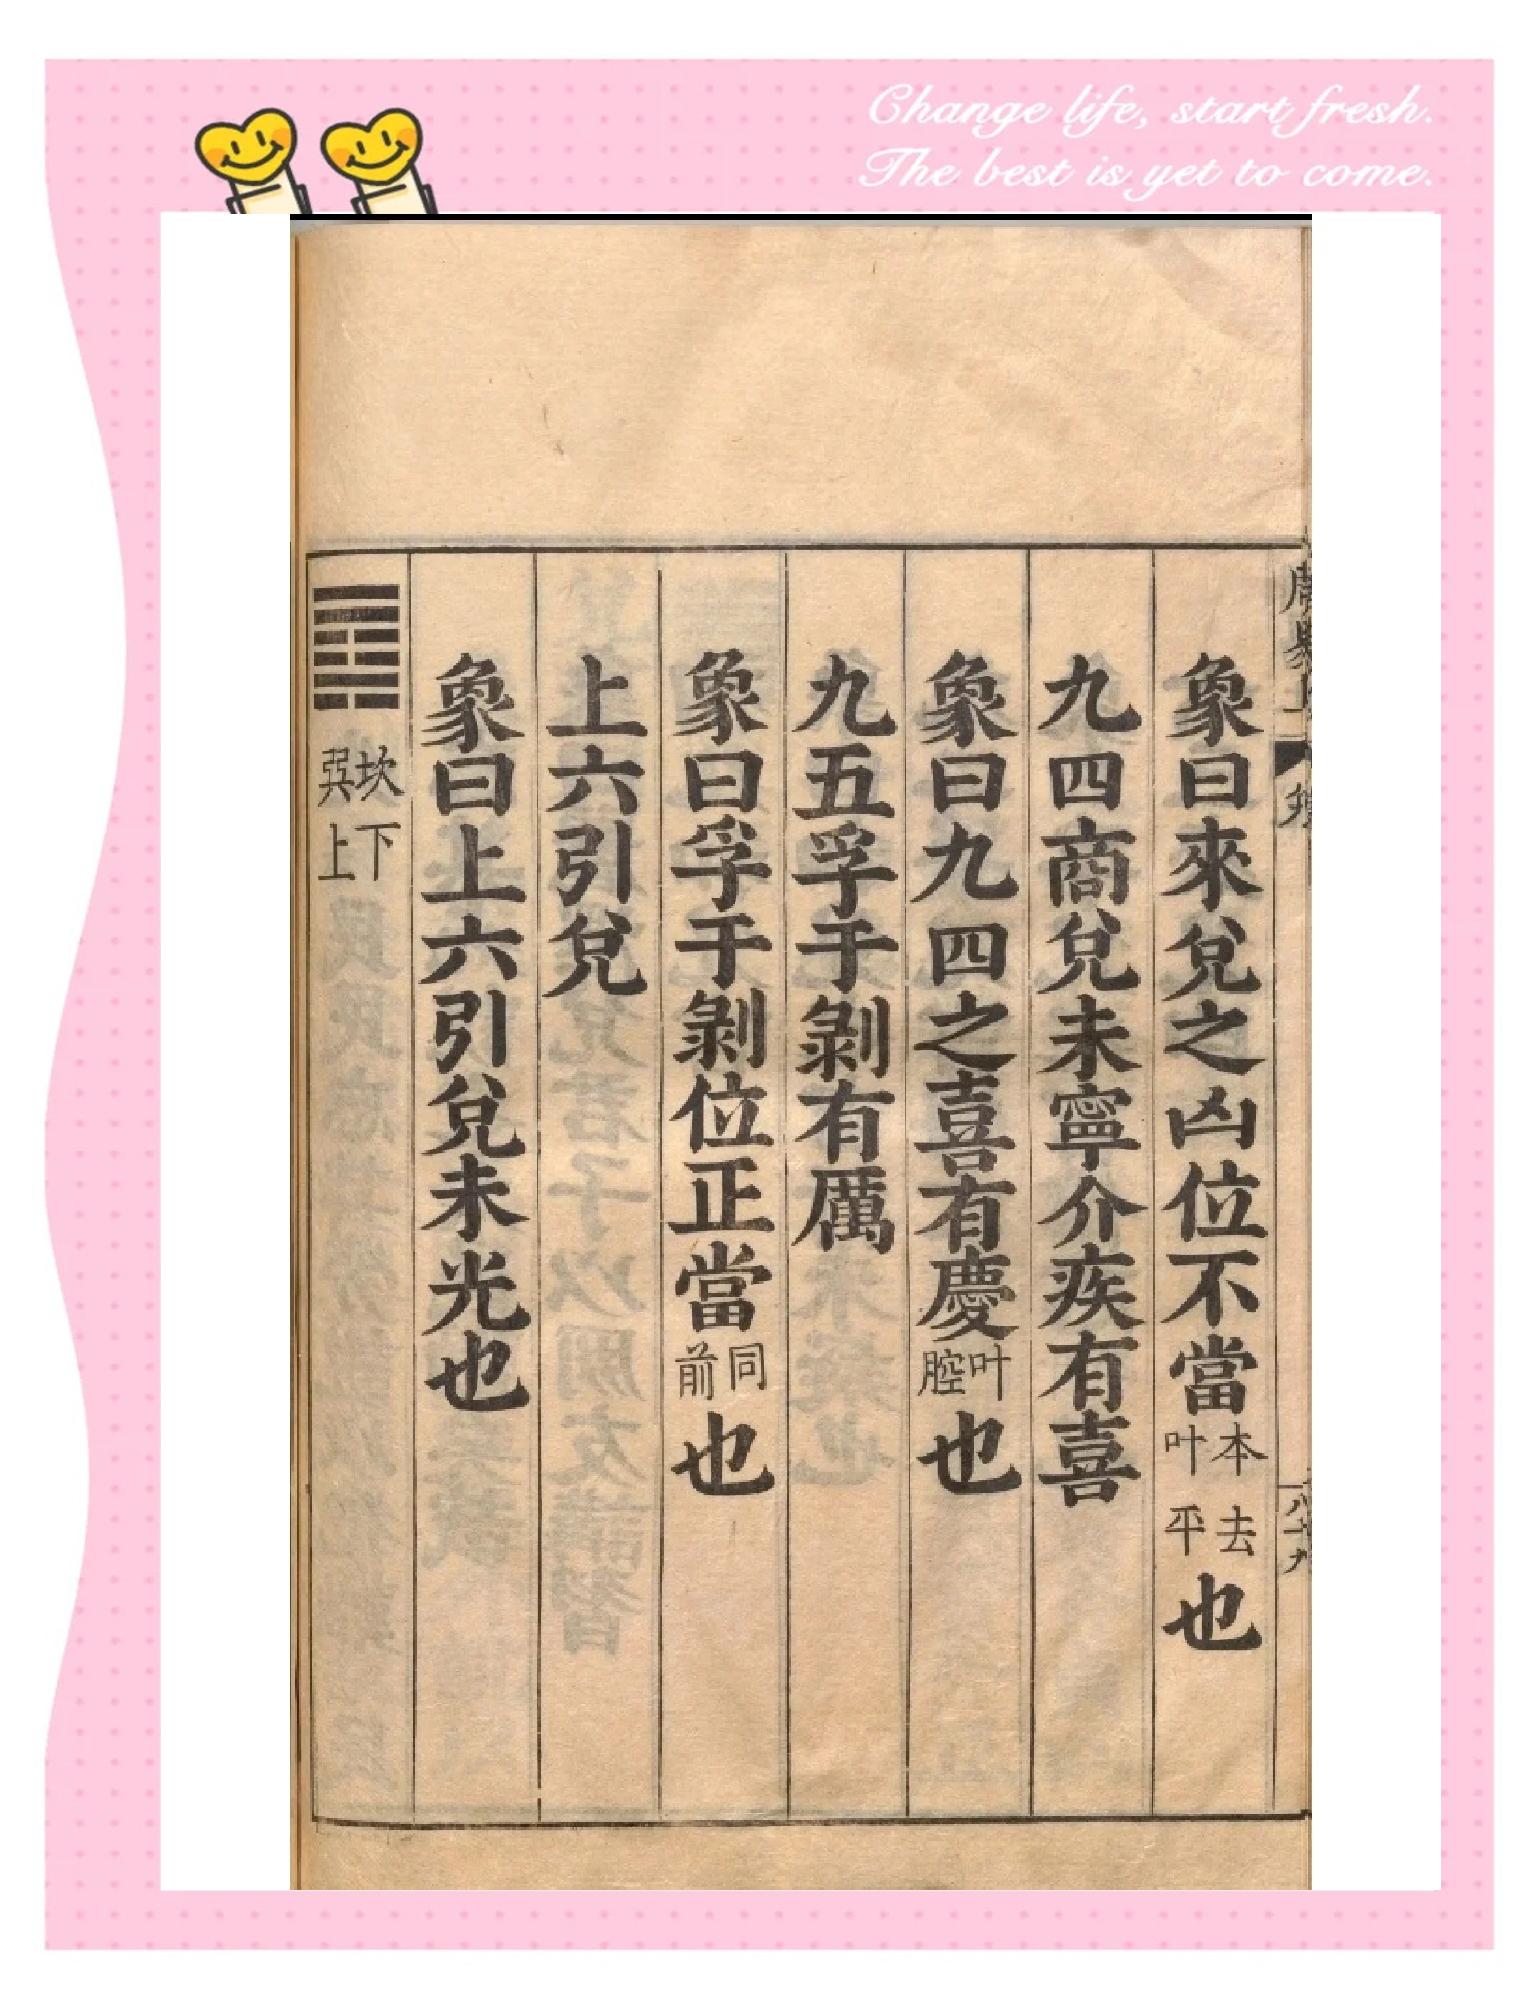 Change life, start fresh.
The best is yet to come.
象曰來兌之凶位不當本去叶平也
九四商兌未寧介疾有喜
象曰九四之喜有慶叶腔也
九五孚于剝有厲
象曰孚于剝位正當同前也
上六引兌
象曰上六引兌未光也
坎下巽上